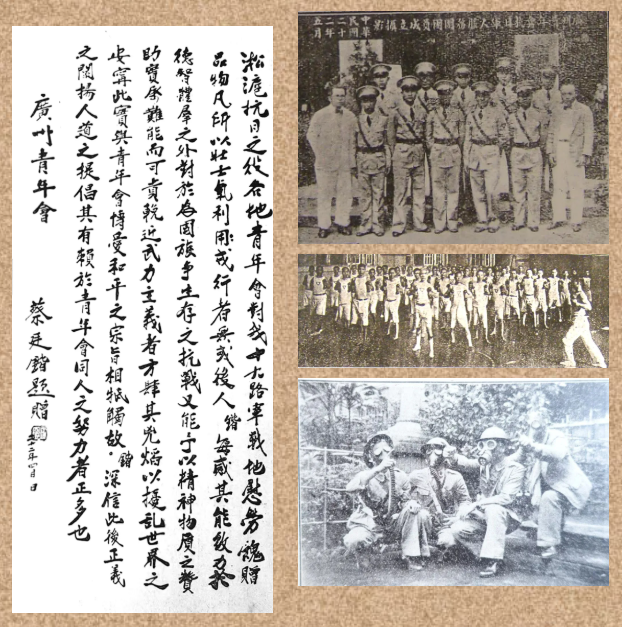 淞滬抗日之役各地青年會對我十九路軍戰地慰勞餽贈
品物凡所以壯士氣利用或行者無或後人鍇每感其能致力於
德智體羣之外對於為國族爭生存之抗戰又能予以精神物質之贊
助實屬難能而可貴輓近武力主義者方肆其兇焰以擾乱世界之
安寧此實與青年會博愛和平之宗旨相牴觸故。鍇深信此後正義
之闡揚人道之提倡其有賴於青年會同人之努力者正多也
廣州青年會
蔡廷鍇題贈
年四月日
團團員成立攝影
中華民國二十二年五月